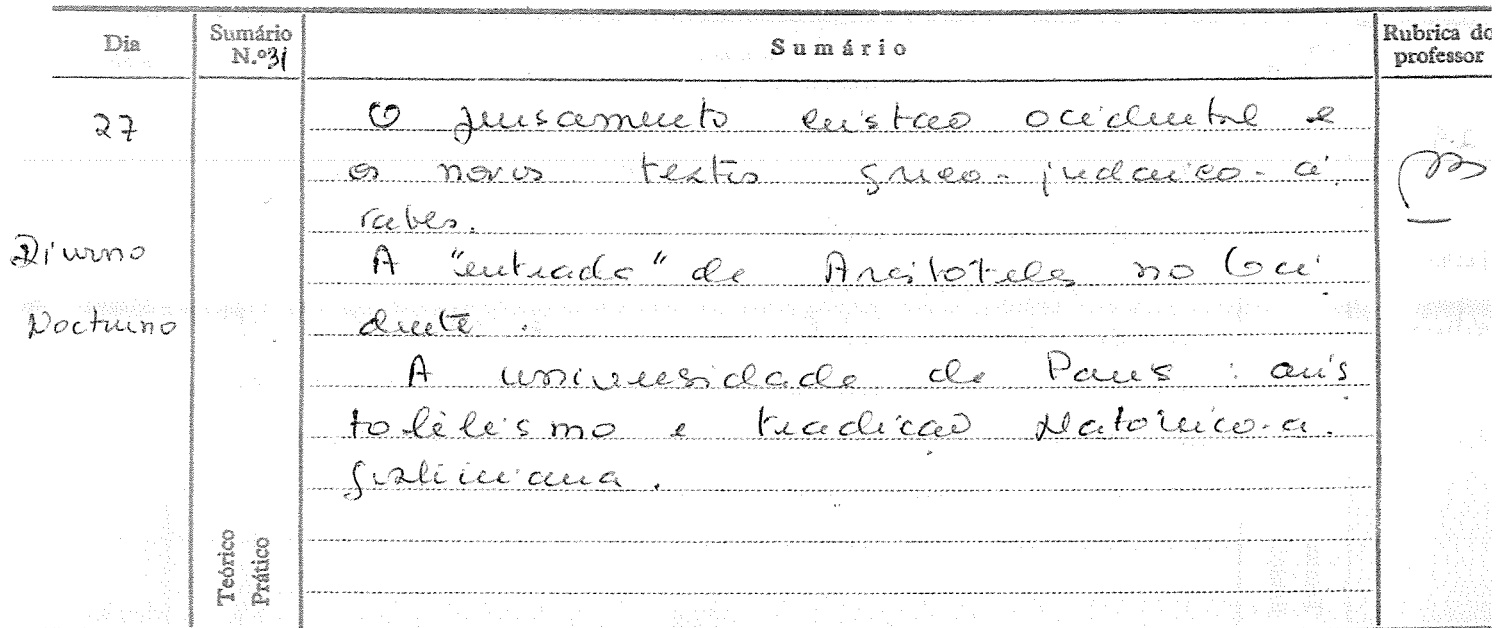 Dia
Sumário N.º 31
Sumário
Rubrica do professor
27
O pensamento cristão ocidental e
os novos textos greco-judaico-á
rabes.
Diurno
A "entrada" de Aristóteles no Oci
Nocturno
dente.
A universidade de Paris: aris
totelismo e tradição platónico-a
gustiniana.
Teórico
Prático